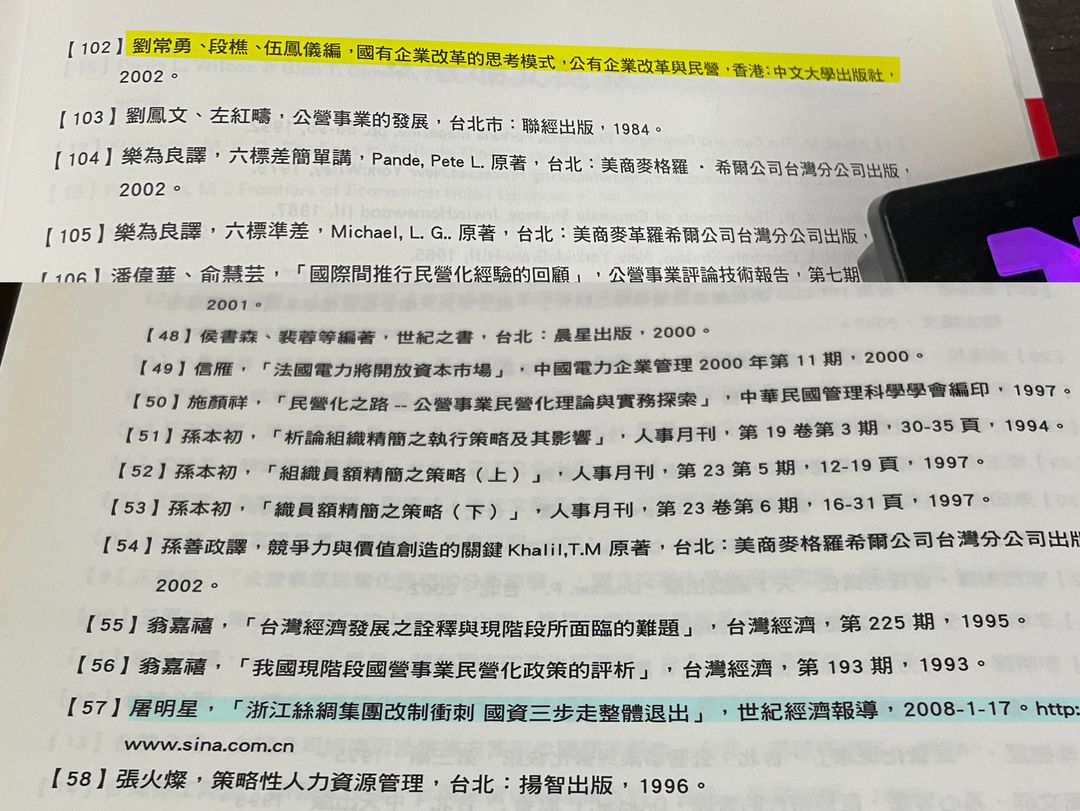 【102】劉常勇、段樵、伍鳳儀編，國有企業改革的思考模式，公有企業改革與民營，香港：中文大學出版社，
2002。
【103】劉鳳文、左紅疇，公營事業的發展，台北市：聯經出版，1984。
【104】樂為良譯，六標差簡單講，Pande, Pete L. 原著，台北：美商麥格羅．希爾公司台灣分公司出版，
2002。
【105】樂為良譯，六標準差，Michael, L. G.. 原著，台北：美商麥革羅希爾公司台灣分公司出版，
【106】潘偉華、俞慧芸，「國際間推行民營化經驗的回顧」，公營事業評論技術報告，第七期
2001。
【48】侯書森、裴蓉等編著，世紀之書，台北：晨星出版，2000。
【49】信雁，「法國電力將開放資本市場」，中國電力企業管理 2000 年第 11 期，2000。
【50】施顏祥，「民營化之路 -- 公營事業民營化理論與實務探索」，中華民國管理科學學會編印，1997。
【51】孫本初，「析論組織精簡之執行策略及其影響」，人事月刊，第 19 卷第 3 期，30-35 頁，1994。
【52】孫本初，「組織員額精簡之策略（上）」，人事月刊，第 23 第 5 期，12-19 頁，1997。
【53】孫本初，「織員額精簡之策略（下）」，人事月刊，第 23 卷第 6 期，16-31 頁，1997。
【54】孫善政譯，競爭力與價值創造的關鍵 Khalil,T.M 原著，台北：美商麥格羅希爾公司台灣分公司出版
2002。
【55】翁嘉禧，「台灣經濟發展之詮釋與現階段所面臨的難題」，台灣經濟，第 225 期，1995。
【56】翁嘉禧，「我國現階段國營事業民營化政策的評析」，台灣經濟，第 193 期，1993。
【57】屠明星，「浙江絲綢集團改制衝刺 國資三步走整體退出」，世紀經濟報導，2008-1-17。http:
www.sina.com.cn
【58】張火燦，策略性人力資源管理，台北：揚智出版，1996。